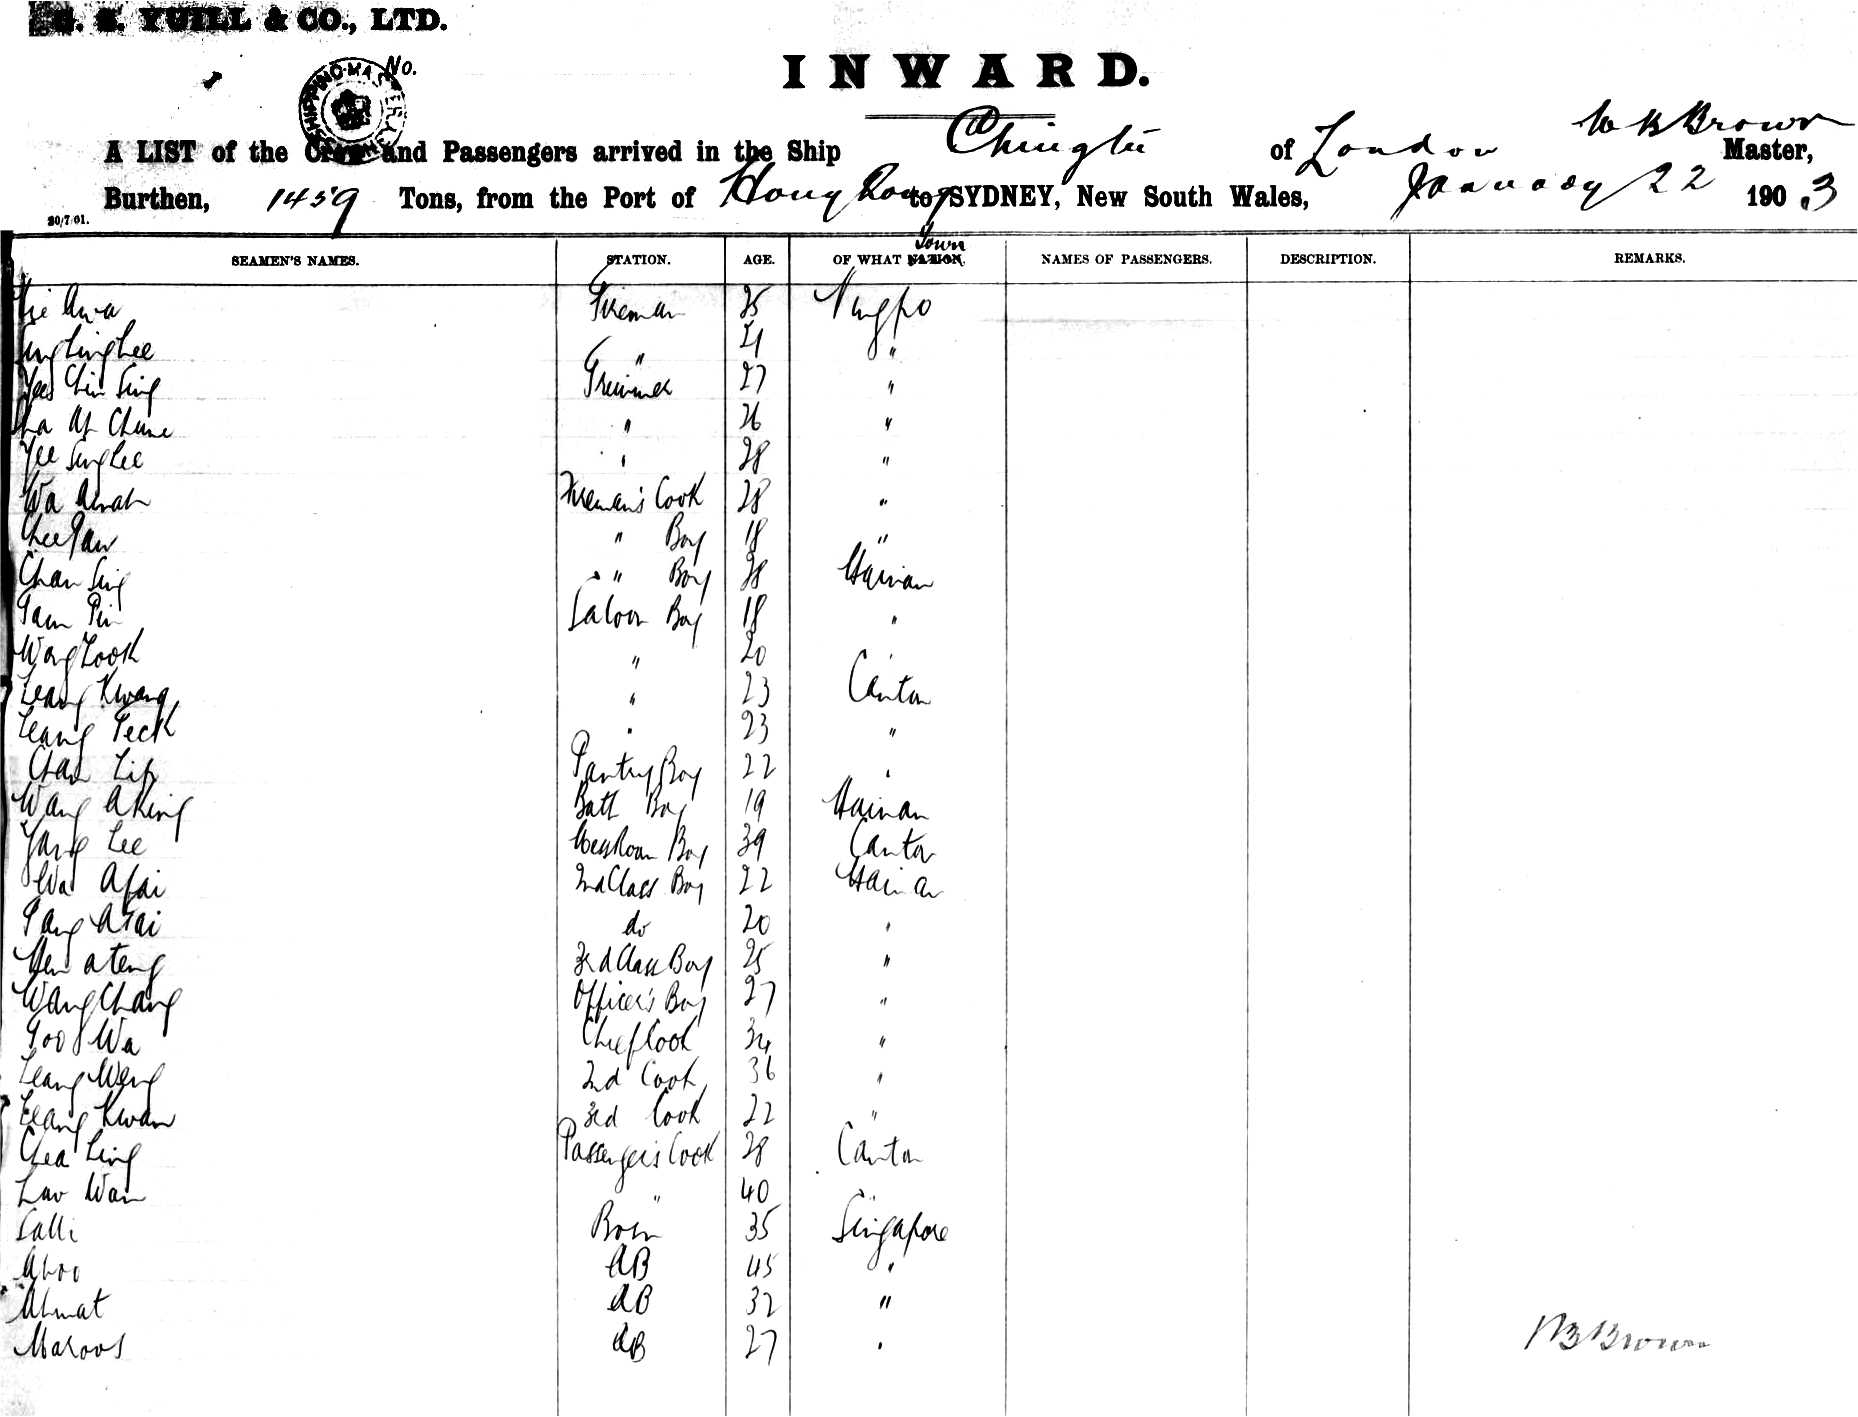 G. S. YUILL & CO., LTD.
No.
INWARD.
SHIPPING MASTER
A LIST of the Crew and Passengers arrived in the Ship Chingtu of London W B Brown Master,
Burthen, 1459 Tons, from the Port of Hong Kong to SYDNEY, New South Wales, January 22 1903
20/7/01.
SEAMEN'S NAMES. STATION. AGE. OF WHAT NATION. Town NAMES OF PASSENGERS. DESCRIPTION. REMARKS.
Awa Fireman 25 Ningpo
Ling Lee " 21 "
Yee Chin Sing Trimmer 27 "
Ah Chune " 26 "
Yee Sing Lee " 28 "
Wa Awah Fireman's Cook 28 "
Chee Paw " Boy 18 "
Chan Sing " Boy 28 Hainan
Tam Pin Saloon Boy 18 "
Wong Look " 20 "
Leang Kwang " 23 Canton
Leang Peck " 23 "
Chan Lip Pantry Boy 22 "
Wang Aking Bath Boy 19 Hainan
Yang Lee Messroom Boy 39 Canton
Wa Afai 2nd Class Boy 22 Hainan
Pang Atai do 20 "
Hen Ateng 3rd Class Boy 25 "
Wang Chang Officer's Boy 27 "
Foo Wa Chief Cook 34 "
Leang Weng 2nd Cook 36 "
Leang Kwan 3rd Cook 22 "
Chea Ling Passengers Cook 28 Canton
Lao Wan " 40 "
Salli Bosn 35 Singapore
Aboo AB 45 "
Ahmat AB 32 "
Maroos AB 27 "
W B Brown